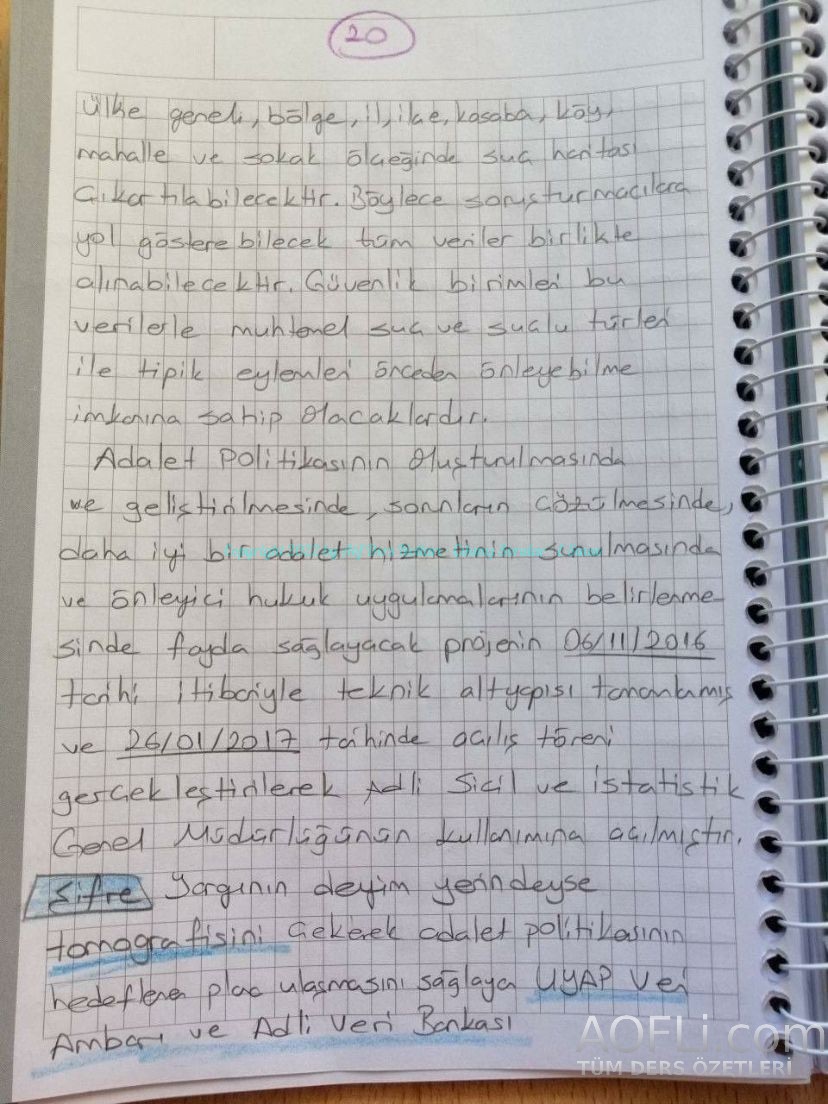 20
ülke geneli, bölge, il, ilçe, kasaba, köy,
mahalle ve sokak ölçeğinde suç haritası
çıkartılabilecektir. Böylece soruşturmacılara
yol gösterebilecek tüm veriler birlikte
alınabilecektir. Güvenlik birimleri bu
verilerle muhtemel suç ve suçlu türleri
ile tipik eylemleri önceden önleyebilme
imkanına sahip olacaklardır.
Adalet politikasının oluşturulmasında
ve geliştirilmesinde, sorunların çözülmesinde,
daha iyi bir adalet hizmetinin sunulmasında
ve önleyici hukuk uygulamalarının belirlenme-
sinde fayda sağlayacak projenin 06/11/2016
tarihi itibariyle teknik altyapısı tamamlamış
ve 26/01/2017 tarihinde açılış töreni
gerçekleştirilerek Adli Sicil ve İstatistik
Genel Müdürlüğünün kullanımına açılmıştır.
Şifre Yargının deyim yerindeyse
tomografisini çekerek adalet politikasının
hedeflenen ulaşmasını sağlaya UYAP Veri
Ambarı ve Adli Veri Bankası
AOFLi.com
TÜM DERS ÖZETLERİ